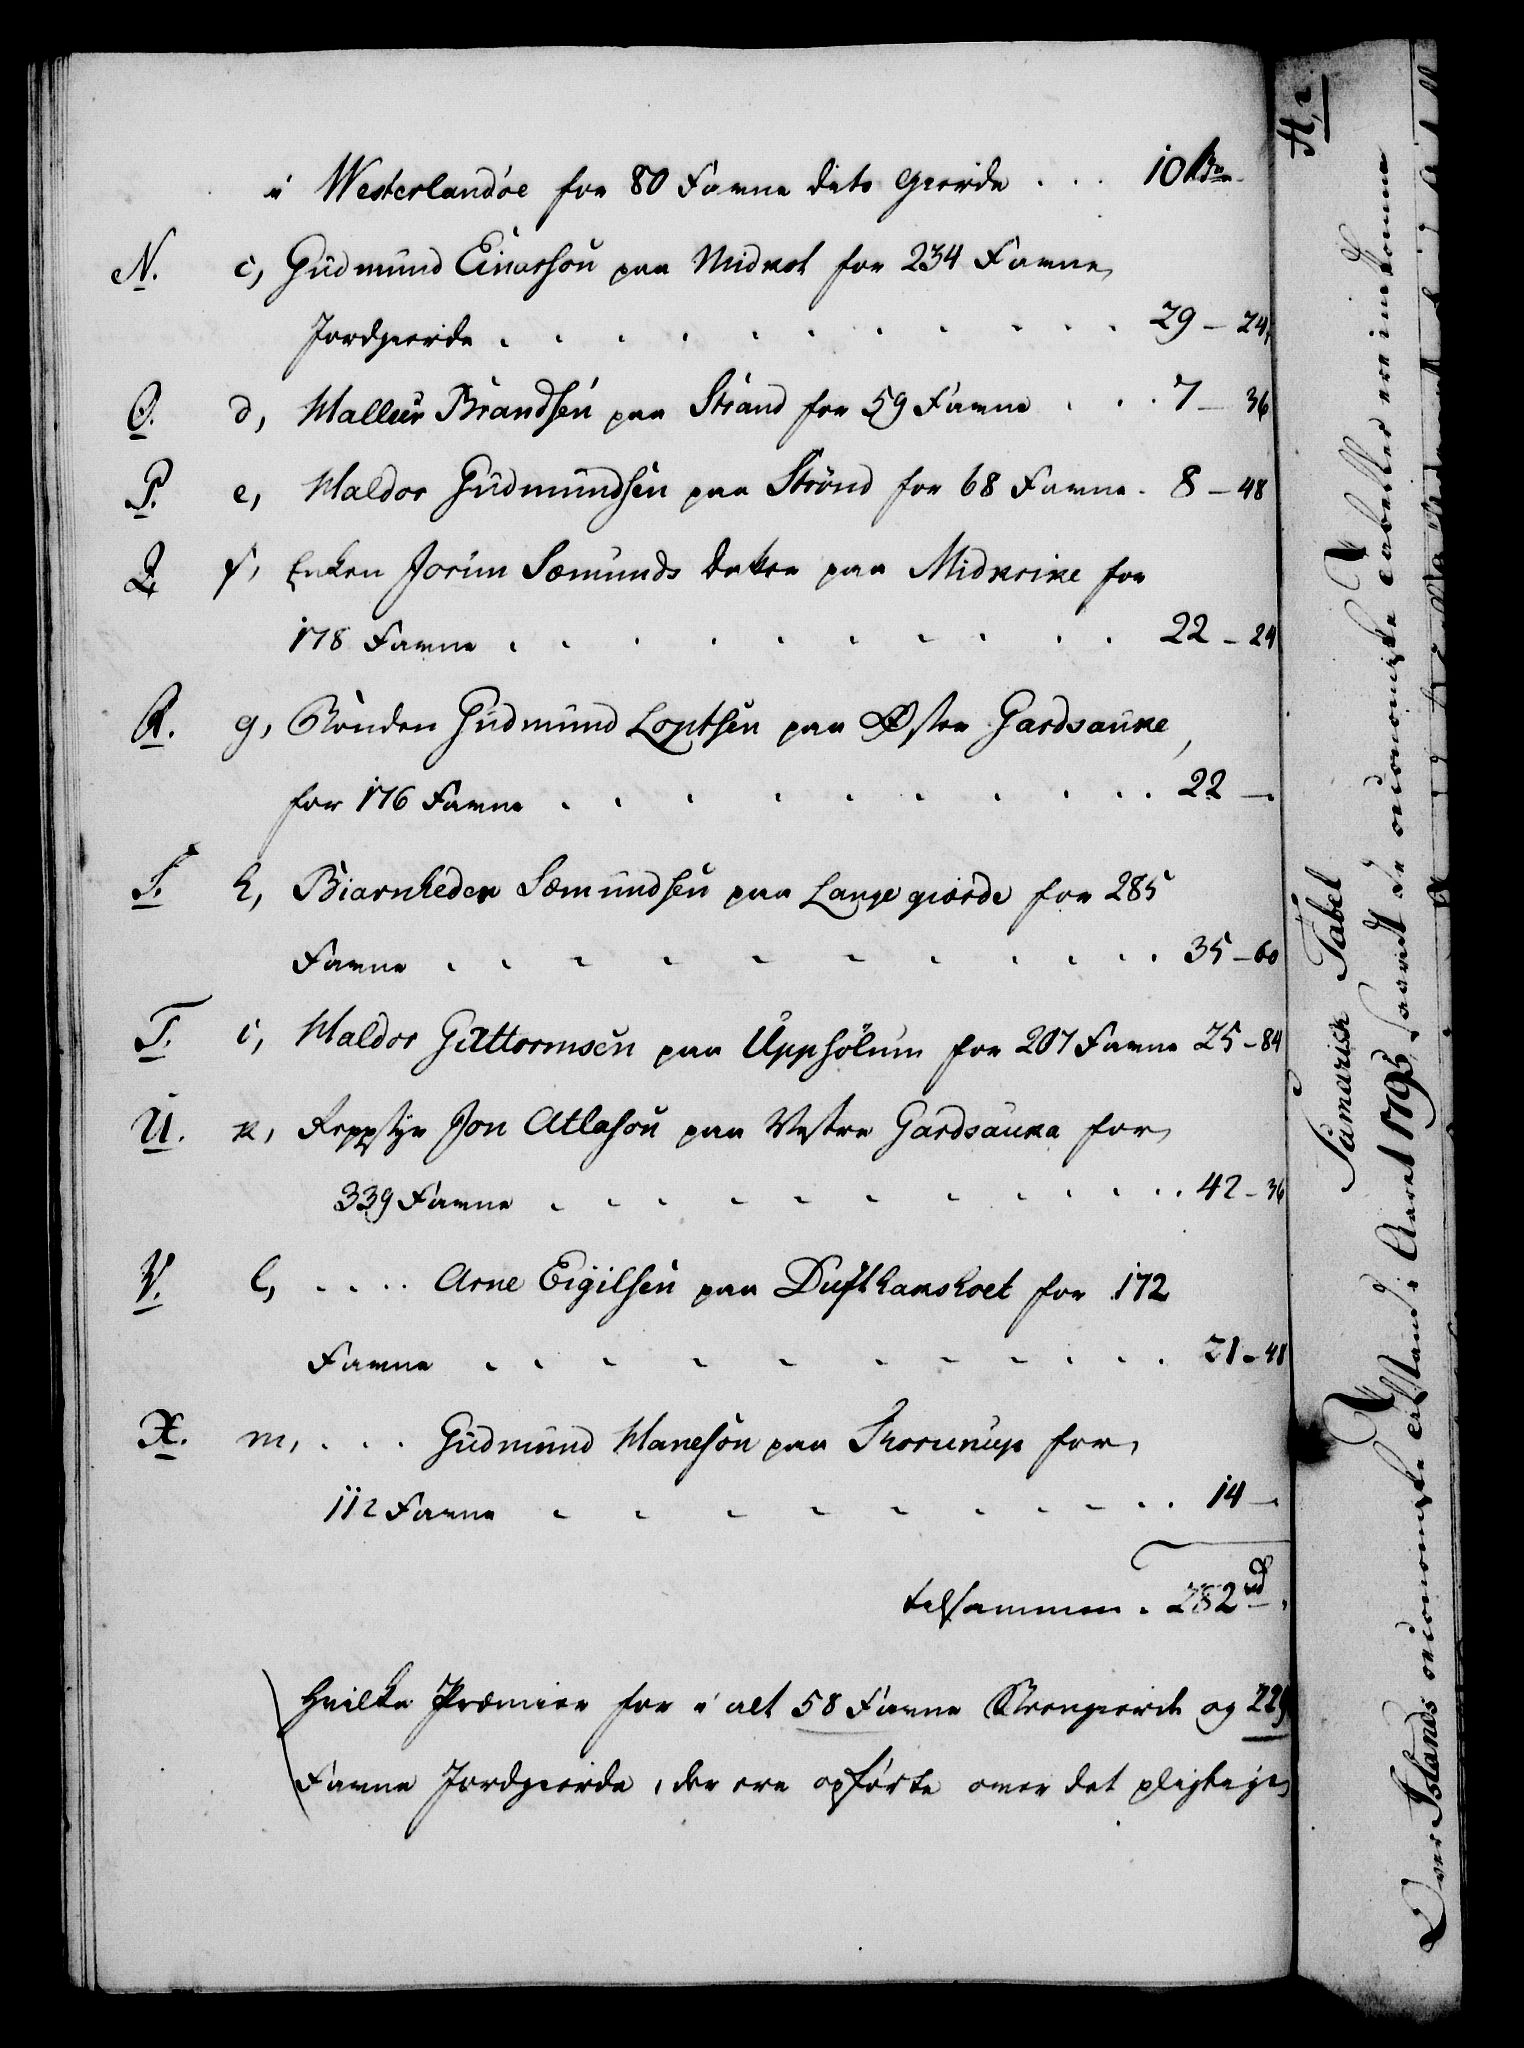 i Westerlandöe for 80 Favne dito gierde . . . 10 Rd
N. c, Gudmund Einarsön paa Midkot for 234 Favne
Jordgierde . . . . . . . . . . 29 – 24
O. d, Hallur Brandsen paa Strand for 59 Favne . . . 7 – 36
P. e, Haldor Gudmundsen paa Strönd for 68 Favne . 8 – 48
Q f, Enken Jorun Sæmunds datter paa Midkrike for
178 Favne . . . . . . . . . . 22 – 24
R. g, Bonden Gudmund Loptsen paa Østre Gardsauke,
for 176 Favne . . . . . . . . . . 22 –
S. h, Biarnheder Sæmundsen paa Lange giærde for 285
Favne . . . . . . . . . . 35 – 60
T. i, Haldor Guttormsen paa Uppsölum for 207 Favne 25 – 84
U. k, Reppstyr Jon Atlason paa Vestre Gardsauka for
339 Favne . . . . . . . . . . 42 – 36
V. l, . . . . Arne Eigilsen paa Dufthaxholt for 172
Favne . . . . . . . . . . 21 – 48
X. m, . . . Gudmund Hanesön paa for
112 Favne . . . . . . . . . . 14 –
tilsammen . 282 rd
hvilke Præmier for i alt 58 Favne Steengierde og 229
Favne Jordgierde, der ere opførte over det pligtige
H,
Sumarisk Tabel
Over Islands oeconomiske Tilstand i Aaret 1795, saavidt de oeconomiske Tabeller ere inkomne